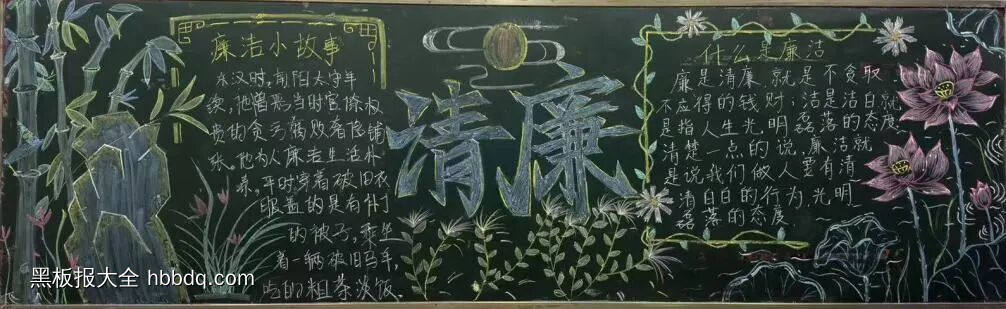 廉洁小故事
东汉时,南阳太守羊
续,他曾形当时官僚权
贵的贪污腐败奢侈铺
张。他为人廉洁生活朴
素。平时穿着破旧衣
服盖的是具有补丁
的被子,乘坐
着一辆破旧马车,
吃的粗茶淡饭。
清廉
什么是廉洁
廉是清廉,就是不贪取
不应得的钱财;洁是洁白就
是指人生光明磊落的态度
清楚一点的说,廉洁就
是说我们做人要有清
清白白的行为,光明
磊落的态度
黑板报大全 hbbdq.com